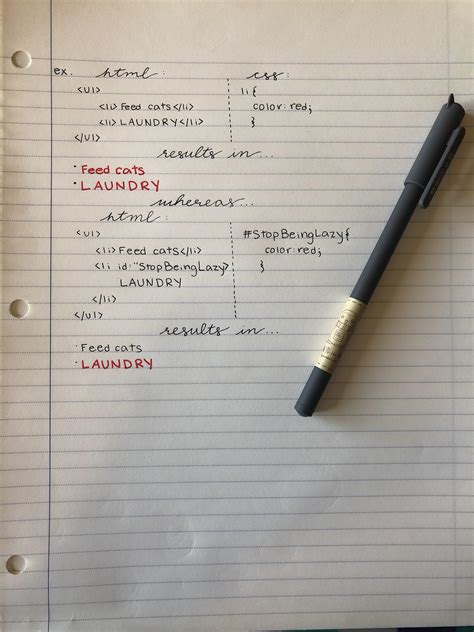 ex. html: css:
<ul> li{
<li>Feed cats</li> color: red;
<li>LAUNDRY</li> }
</ul>
results in...
· Feed cats
· LAUNDRY
whereas...
html:
<ul> #StopBeingLazy{
<li>Feed cats</li> color: red;
<li id="StopBeingLazy> }
LAUNDRY
</li>
</ul>
results in...
· Feed cats
· LAUNDRY